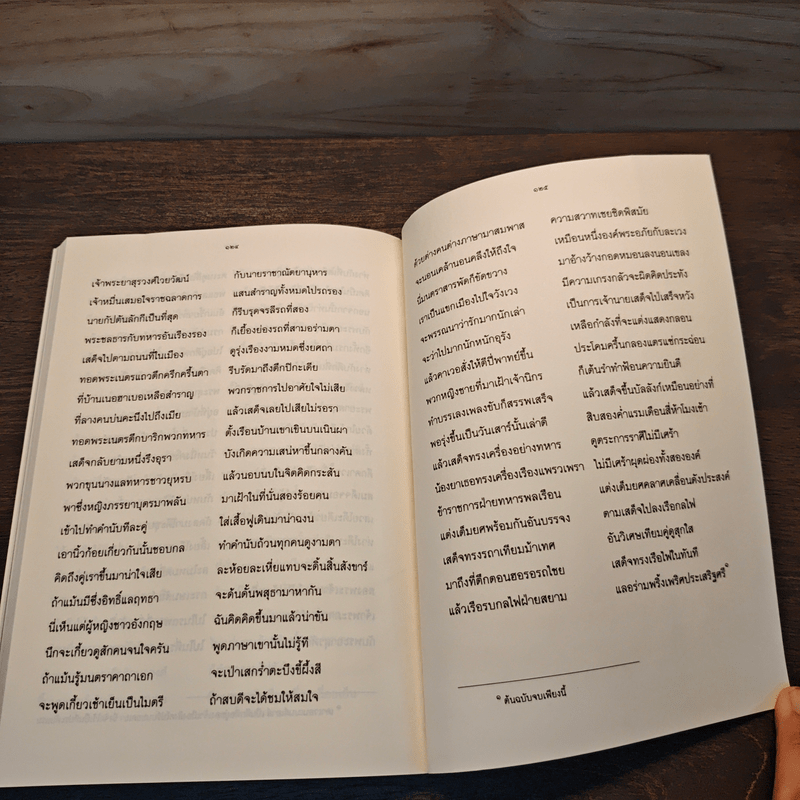 ๑๒๔
เจ้าพระยาสุรวงศ์ไวยวัฒน์ กับนายราชาณัตยานุหาร
เจ้าหมื่นเสมอใจราชฉลาดการ แสนสำราญทั้งหมดไปรถรอง
นายกัปตันลักก็เป็นที่สุด ก็รีบรุดจรลีรถที่สอง
พระชลธารกับทหารอันเรืองรอง ก็เยื้องย่องรถที่สามอร่ามตา
เสด็จไปตามถนนที่ในเมือง ดูรุ่งเรืองงามหมดซึ่งยศถา
ทอดพระเนตรแถวตึกครึกครื้นตา รีบรัดมาถึงตึกปิกะเดีย
ที่บ้านเนอฮาเบอเหลือสำราญ พวกราชการไปอาศัยใจไม่เสีย
ที่ลางคนบ่นคะนึงไปถึงเมีย แล้วเสด็จเลยไปเสียไม่รอรา
ทอดพระเนตรตึกบาริกพวกทหาร ตั้งเรือนบ้านเขาเขินบนเนินผา
เสด็จกลับยามหนึ่งรึงอุรา บังเกิดความเสน่หาขึ้นกลางคัน
พวกขุนนางแลทหารชาวยุหรบ แล้วนอบนบในจิตคิดกระสัน
พาซึ่งหญิงภรรยาบุตรมาพลัน มาเฝ้าในที่นั่นสองร้อยคน
เข้าไปทำคำนับทีละคู่ ใส่เสื้อฟูเดินมาน่าฉงน
เอานิ้วก้อยเกี่ยวกันนั้นชอบกล ทำคำนับถ้วนทุกคนดูงามตา
คิดถึงคู่เราขึ้นมาน่าใจเสีย ละห้อยละเหี่ยแทบจะดิ้นสิ้นสังขาร์
ถ้าแม้นมีซึ่งอิทธิ์แลฤทธา จะดั้นดั้นพสุธามาหากัน
นี่เห็นแต่ผู้หญิงชาวอังกฤษ ฉันคิดคิดขึ้นมาแล้วน่าขัน
นึกจะเกี้ยวดูสักคนจนใจครัน พูดภาษาเขานั้นไม่รู้ที
ถ้าแม้นรู้มนตราคาถาเอก จะเป่าเสกร่ำตะบึงขี้ผึ้งสี
จะพูดเกี้ยวเช้าเย็นเป็นไมตรี ถ้าสบดีจะได้ชมให้สมใจ
๑๒๕
ด้วยต่างคนต่างภาษามาสมพาส ความสวาทเชยชิดพิสมัย
จะนอนเคล้านอนคลึงให้ถึงใจ เหมือนหนึ่งองค์พระอภัยกับละเวง
นี่มนตราสารพัดก็ขัดขวาง มาอ้างว้างกอดหมอนลงนอนเขลง
เราเป็นแขกเมืองไปใจวังเวง มีความเกรงกลัวจะผิดคิดประทัง
จะพรรณนาว่ารักมากนักเล่า เป็นการเจ้านายเสด็จไป่เสร็จหวัง
จะว่าไปมากนักหนักอุรัง เหลือกำลังที่จะแต่งแสดงกลอน
แล้วคาเวอสั่งให้ตีปี่พาทย์ขึ้น ประโคมครื้นกลองแตรแซ่กระฉ่อน
พวกหญิงชายที่มาเฝ้าเจ้านิกร ก็เต้นรำทำฟ้อนความยินดี
ทำบรรเลงเพลงขับก็สรรพเสร็จ แล้วเสด็จขึ้นบัลลังก์เหมือนอย่างที่
พอรุ่งขึ้นเป็นวันเสาร์นั้นเล่าดี สิบสองค่ำแรมเดือนสี่ห้าโมงเช้า
แล้วเสด็จทรงเครื่องอย่างทหาร ดูตระการราศีไม่มีเศร้า
น้องยาเธอทรงเครื่องเรืองแพรวเพรา ไม่มีเศร้าผุดผ่องทั้งสององค์
ข้าราชการฝ่ายทหารพลเรือน แต่งเต็มยศคลาศเคลื่อนดังประสงค์
แต่งเต็มยศพร้อมกันอันบรรจง ตามเสด็จไปลงเรือกลไฟ
เสด็จทรงรถาเทียมม้าเทศ อันวิเศษเทียมคู่ดูสุกใส
มาถึงที่ตึกดอนฮอรอรถไชย เสด็จทรงเรือไฟในทันที
แล้วเรือรบกลไฟฝ่ายสยาม แลอร่ามพริ้งเพริศประเสริฐศรี๑
๑ ต้นฉบับจบเพียงนี้